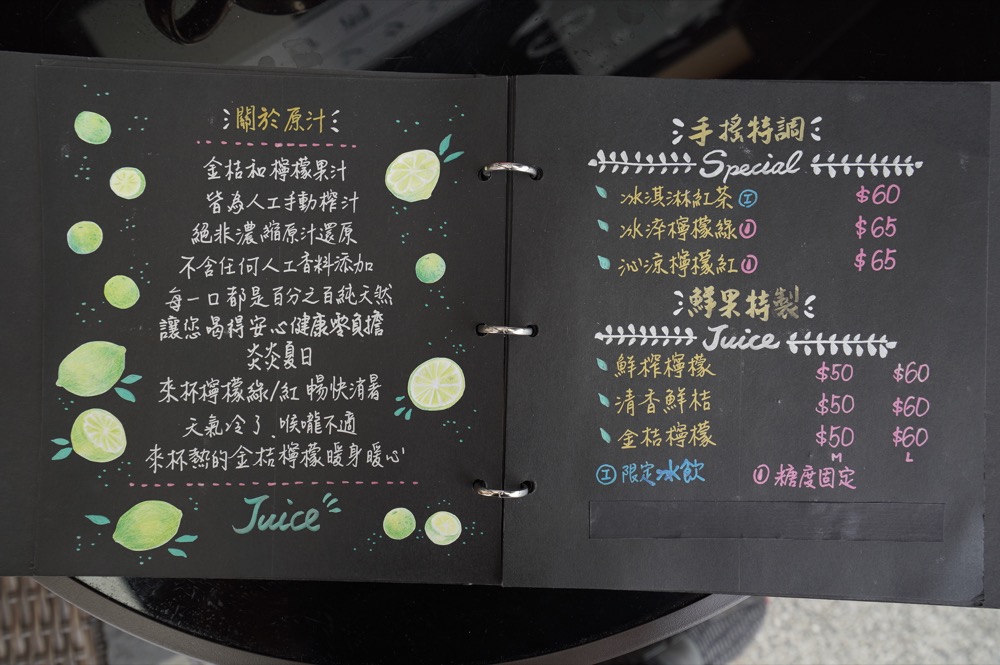 關於原汁
金桔和檸檬果汁
皆為人工手動榨汁
絕非濃縮原汁還原
不含任何人工香料添加
每一口都是百分之百純天然
讓您喝得安心健康零負擔
炎炎夏日
來杯檸檬綠/紅 暢快消暑
天氣冷了、喉嚨不適
來杯熱的金桔檸檬暖身暖心
Juice
手搖特調
Special
冰淇淋紅茶 I $60
冰淬檸檬綠 $65
沁涼檸檬紅 $65
鮮果特製
Juice
鮮榨檸檬 $50 $60
清香鮮桔 $50 $60
金桔檸檬 $50 $60
M L
I 限定冰飲 糖度固定